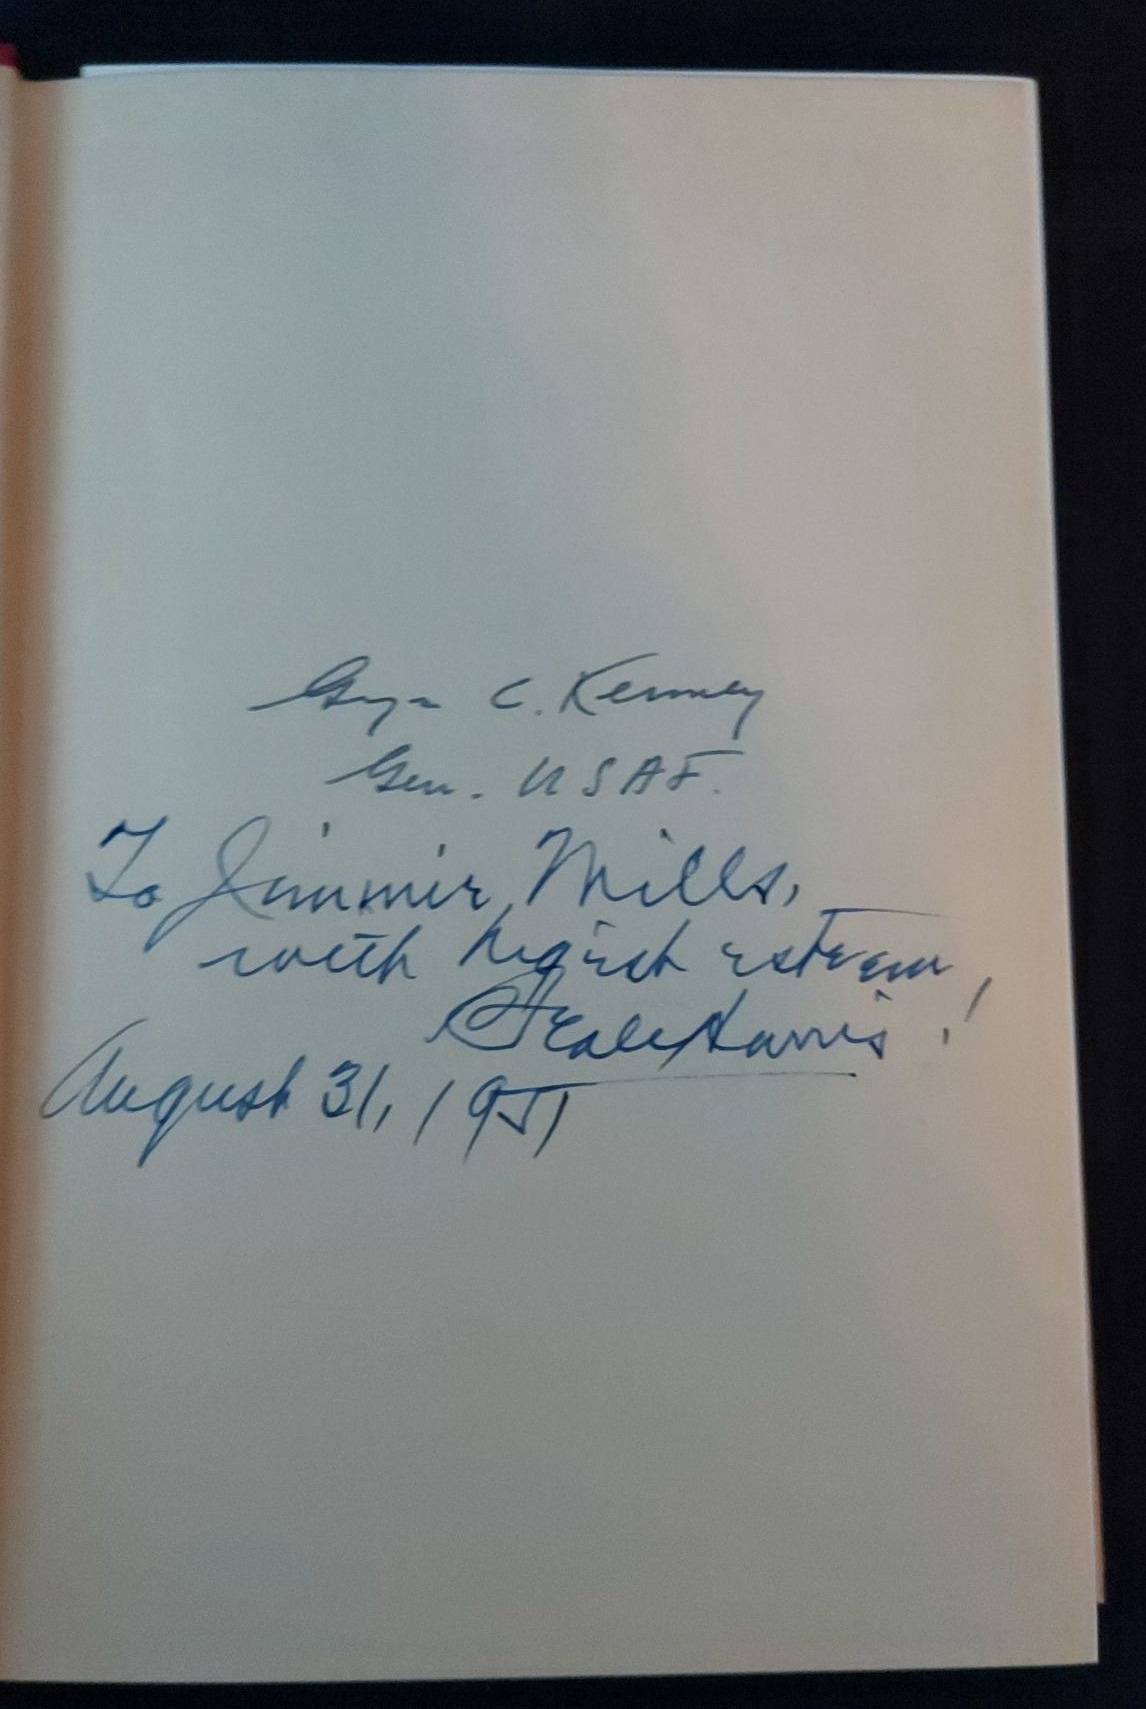 George C. Kenney
Gen. USAF.
To Jimmie Mills,
with high esteem,
Seale Harris!
August 31, 1951